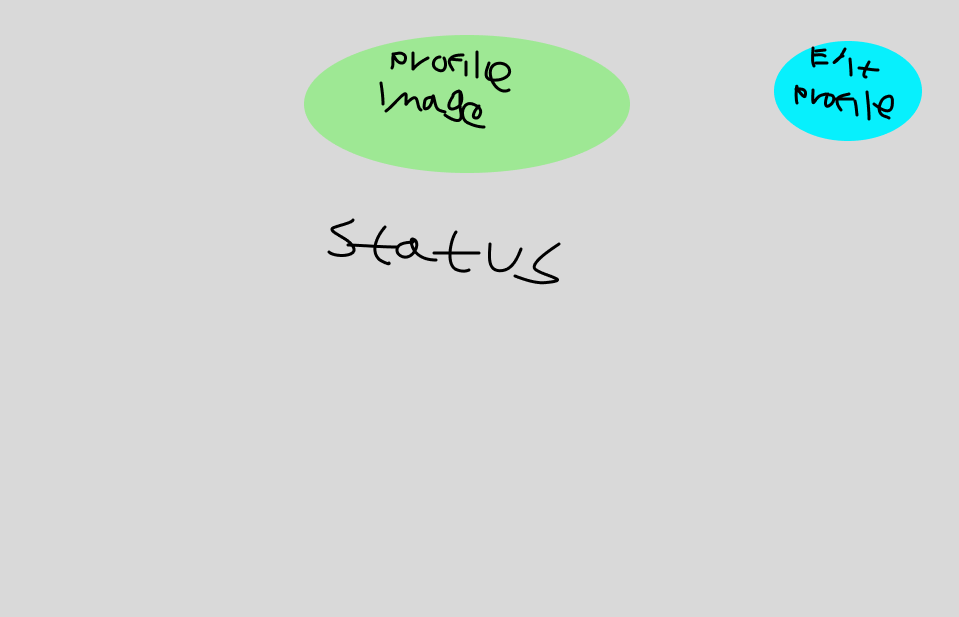 profile
Image
Edit
profile
status